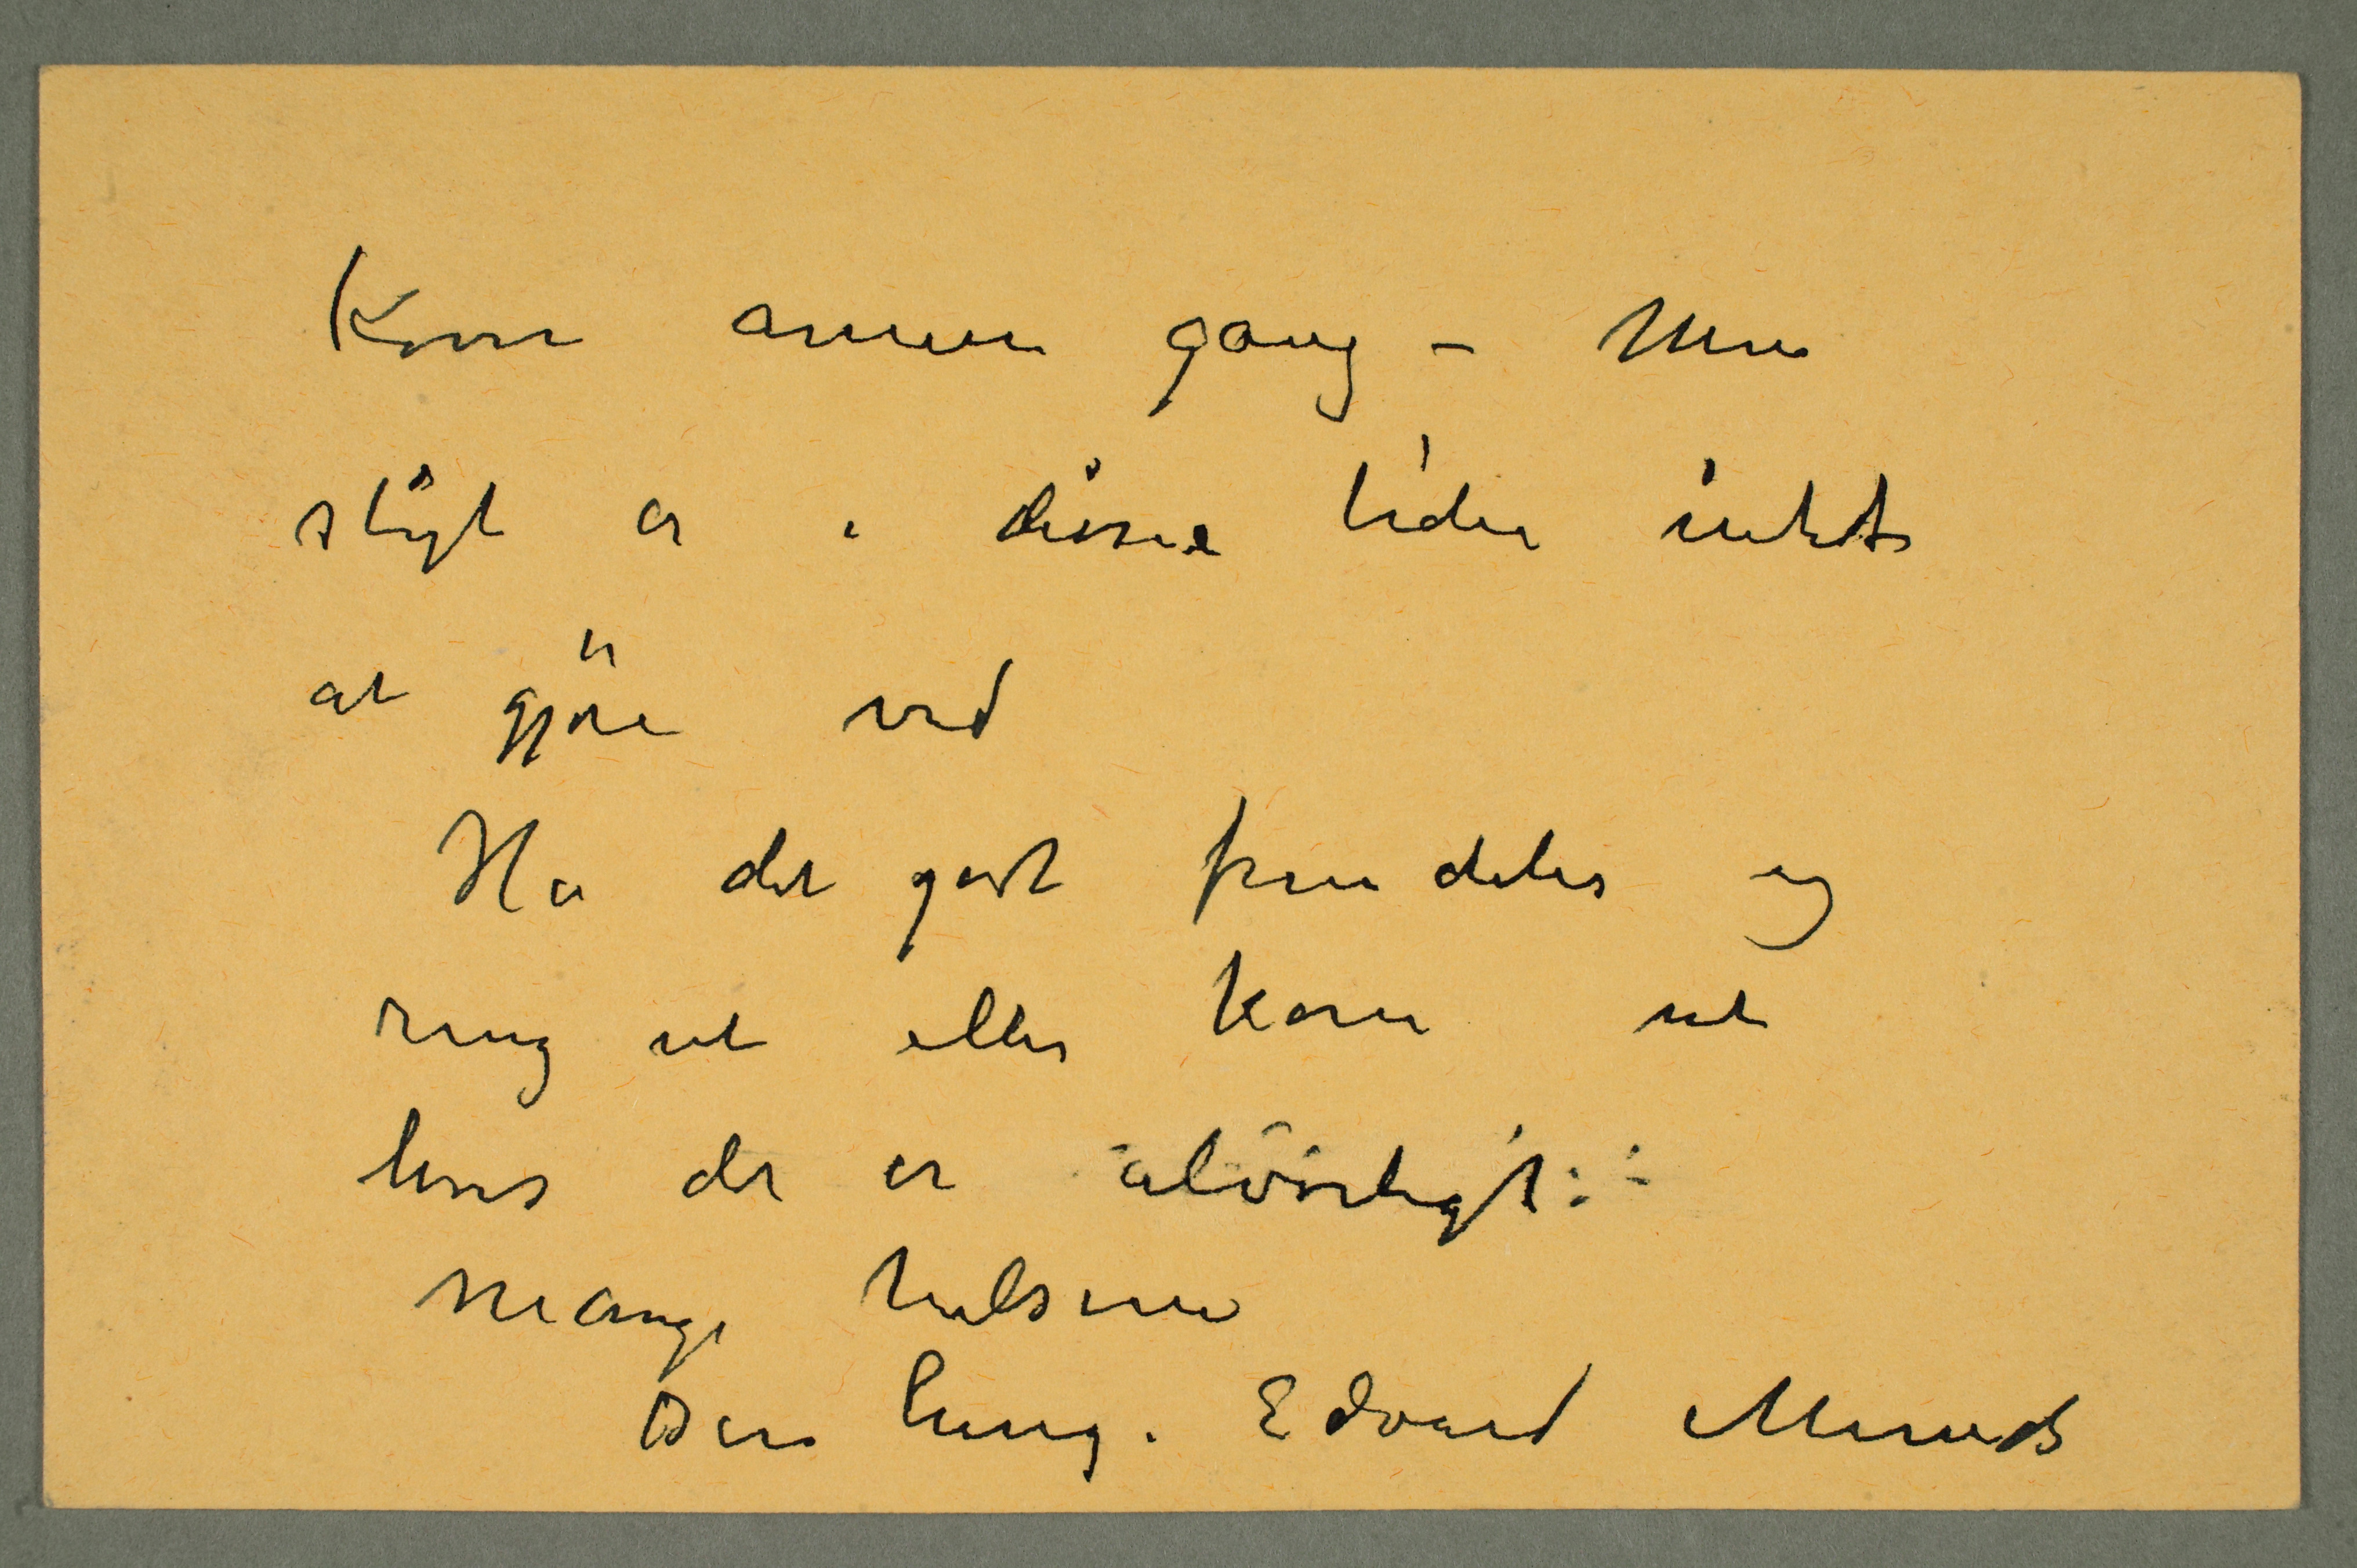 Kom annen gang – Men
sligt er i disse tider intet
at gjöre ved
Ha det godt fremdeles og
ring ut eller kom ut
hvis det er alvorligt:–
Mange hilsener
Din heng. Edvard Munch